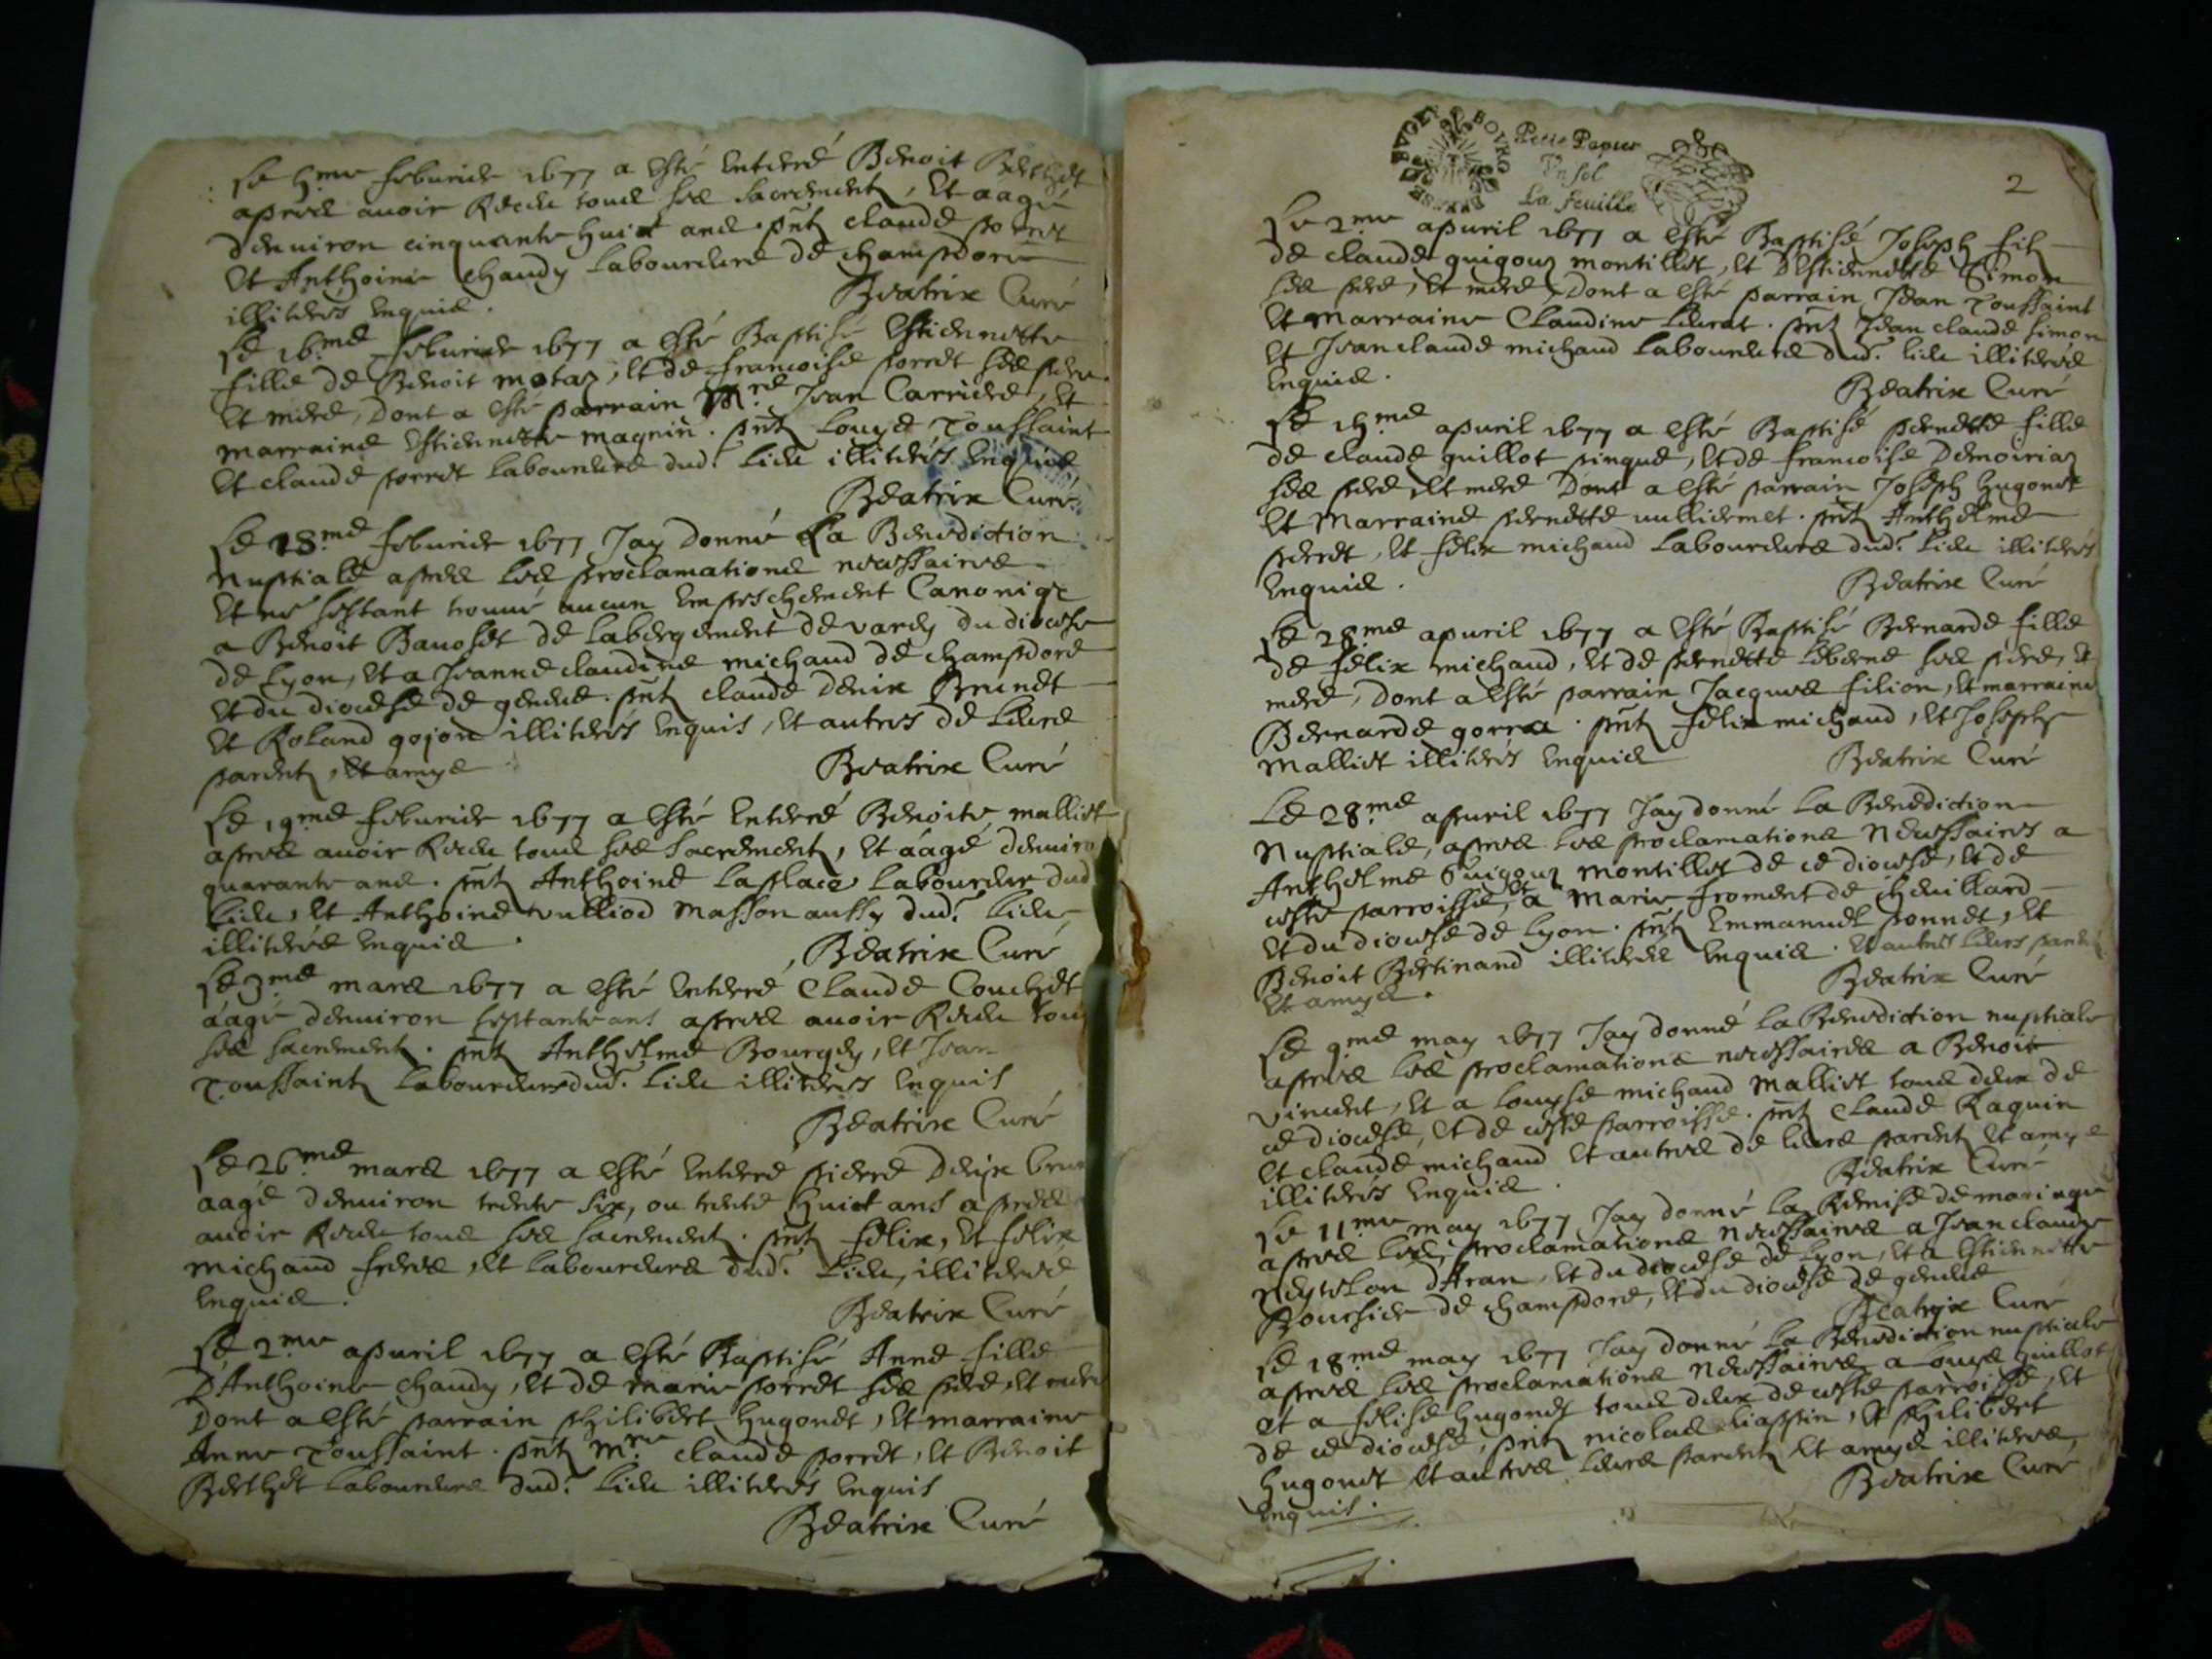 Le 5me feburier 1677 a esté enterré Benoit Berthet
apres avoir Receu tous ses sacrements, et aagé
denviron cinquante huict ans. pnts claude porret
et Anthoine chaudy laboureurs de champdore
illiterés enquis.
Beatrix Curé
Le 16.me feburier 1677 a esté Baptisé Estiennette
fille de Benoit motaz, et de francoise porret ses pere
et mere, Dont a esté parrain Mre Jean Carrier, et
marraine Estiennette magnin. pnts Louys Toussaint
et claude porret laboureurs dud. lieu illiterés enquis
Beatrix Curé
Le 18.me feburier 1677 Jay Donné La Benediction
Nuptiale apres les proclamations necessaires
et ne sestant trouvé aucun empeschement Canoniqe
a Benoit Bavoset de labergement de varey du diocese
de Lyon, et a Jeanne claudine michaud de champdore
et du diocese de geneve. pnts claude Denix Brunet
et Roland gojon illiterés enquis, et autres de leurs
parents, et amys
Beatrix Curé
Le 19.me feburier 1677 a esté enterré Benoite malliet
apres avoir Receu tous ses sacrements, et áagé denviro
quarante ans. pnts Anthoine Laplace Laboureur dud
lieu, et Anthoine vulliod Masson aussy dud. lieu
illiterés enquis.
Beatrix Curé
Le 3.me mars 1677 a esté enterré Claude Couchet
áagé denviron septante ans apres avoir Receu tous
ses sacrements. pnts Anthelme Bourgey, et Jean
Toussaint Laboureurs dud. lieu illiteres enquis
Beatrix Curé
Le 26.me mars 1677 a esté enterré pierre Denix brun
aagé denviron trente six, ou trente huict ans apres
avoir Receu tous ses sacrements. pnts felix, et felix
michaud freres, et laboureurs dud. lieu, illiterés
enquis.
Beatrix Curé
Le 2.me apuril 1677 a esté Baptisé Anne fille
D'Anthoine chaudy, et de marie porret ses pere, et mere
Dont a esté parrain philibert hugonet, et marraine
Anne Toussaint. pnts Mre claude porret, et Benoit
Berthet laboureurs dud. lieu illiterés enquis
Beatrix Curé
BRESSE BVGEY BOVRG
Petit Papier
Un sol
La feuille
2
Le 2.me apuril 1677 a esté Baptisé Joseph fils
de claude guigouz montillet, et D'Estiennette Simon
ses pere, et mere, Dont a esté parrain Jean Toussaint
et Marraine Claudine Levrat. pnts Jean claude simon
et Jean claude michaud laboureurs dud. lieu illiterés
enquis.
Beatrix Curé
Le 15.me apuril 1677 a esté Baptisé pernette fille
de claude guillot pingue, et de francoise Demoiriaz
ses pere, et mere Dont a esté parrain Joseph hugonet
et Marraine pernette vulliermet. pnts Anthelme
perret, et felix michaud laboureurs dud. lieu illiterés
enquis.
Beatrix Curé
Le 28.me apuril 1677 a esté Baptisé Bernarde fille
de felix michaud, et de pernette leberne ses pere, et
mere, Dont a esté parrain Jacques filion, et marraine
Bernarde gorra. pnts felix michaud, et Joseph
Malliet illiterés enquis
Beatrix Curé
Le 28.me apuril 1677 Jay donné la Benediction
Nuptiale, apres les proclamations Necessaires a
Anthelme Guigouz montillet de ce diocese, et de
ceste parroisse, et a Marie froment de chevillard
et du diocese de Lyon. pnts Emmanuel ponnet, et
Benoit Bertinand illiterés enquis. et autres leurs parents
et amys.
Beatrix Curé
Le 9.me may 1677 Jay donné la Benediction nuptiale
apres les proclamations necessaires a Benoit
vincent, et a Louyse michaud Malliet tous deux de
ce diocese, et de ceste parroisse. pnts claude Raquin
et claude michaud et autres de leurs parents et amys
illiterés enquis.
Beatrix Curé
Le 11.me may 1677 Jay donné la Remise de mariage
apres les proclamations Necessaires a Jean claude
Neyreton d'Aran, et du diocese de Lyon, et a Estiennette
Boursier de champdore, et du diocese de geneve
Beatrix Curé
Le 18.me may 1677 Jay donné la Benediction nuptiale
apres les proclamations Necessaires a Louys guillot
et a felise hugonet tous deux de ceste parroisse, et
de ce diocese, pnts nicolas liappin, et philibert
hugonet et autres leurs parents et amys illiterés,
enquis.
Beatrix Curé